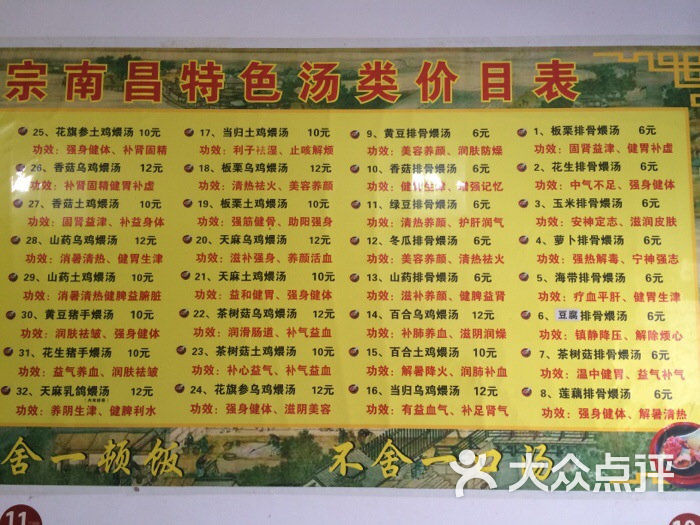 宗南昌特色汤类价目表
25、花旗参土鸡煨汤 10元
功效：强身健体、补肾固精
26、香菇乌鸡煨汤 12元
功效：补肾固精健胃补虚
27、香菇土鸡煨汤 10元
功效：固肾益津、补益身体
28、山药乌鸡煨汤 12元
功效：消暑清热、健胃生津
29、山药土鸡煨汤 10元
功效：消暑清热健脾益腑脏
30、黄豆猪手煨汤 10元
功效：润肤祛皱、强身健体
31、花生猪手煨汤 10元
功效：益气养血、润肤祛皱
32、天麻乳鸽煨汤 12元
功效：养阴生津、健脾利水
17、当归土鸡煨汤 10元
功效：利子祛湿、止咳解烦
18、板栗乌鸡煨汤 12元
功效：清热祛火、美容养颜
19、板栗土鸡煨汤 10元
功效：强筋健骨、助阳强身
20、天麻乌鸡煨汤 12元
功效：滋补强身、养颜活血
21、天麻土鸡煨汤 10元
功效：益和健胃、强身健体
22、茶树菇乌鸡煨汤 12元
功效：润滑肠道、补气益血
23、茶树菇土鸡煨汤 10元
功效：补心益气、补气益血
24、花旗参乌鸡煨汤 12元
功效：强身健体、滋阴美容
9、黄豆排骨煨汤 6元
功效：美容养颜、润肤防燥
10、香菇排骨煨汤 6元
功效：健胃益津、增强记忆
11、绿豆排骨煨汤 6元
功效：清热养颜、护肝润气
12、冬瓜排骨煨汤 6元
功效：美容养颜、清热祛火
13、山药排骨煨汤 6元
功效：滋补养颜、健脾益肾
14、百合乌鸡煨汤 12元
功效：补肺养血、滋阴润燥
15、百合土鸡煨汤 10元
功效：解暑降火、润肺补血
16、当归乌鸡煨汤 12元
功效：有益血气、补足肾气
1、板栗排骨煨汤 6元
功效：固肾益津、健胃补虚
2、花生排骨煨汤 6元
功效：中气不足、强身健体
3、玉米排骨煨汤 6元
功效：安神定志、滋润皮肤
4、萝卜排骨煨汤 6元
功效：强热解毒、宁神强志
5、海带排骨煨汤 6元
功效：疗血平肝、健胃生津
6、豆腐排骨煨汤 6元
功效：镇静降压、解除烦心
7、茶树菇排骨煨汤 6元
功效：温中健胃、益气补气
8、莲藕排骨煨汤 6元
功效：强身健体、解暑清热
舍一顿饭 不舍一口汤
11
大众点评